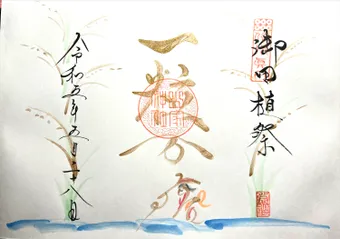 御田植祭
一粒万倍
令和五年五月二十八日